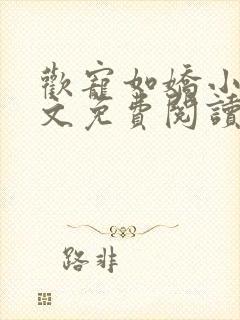 歡寵如嬌小
文免費閱讀
路非